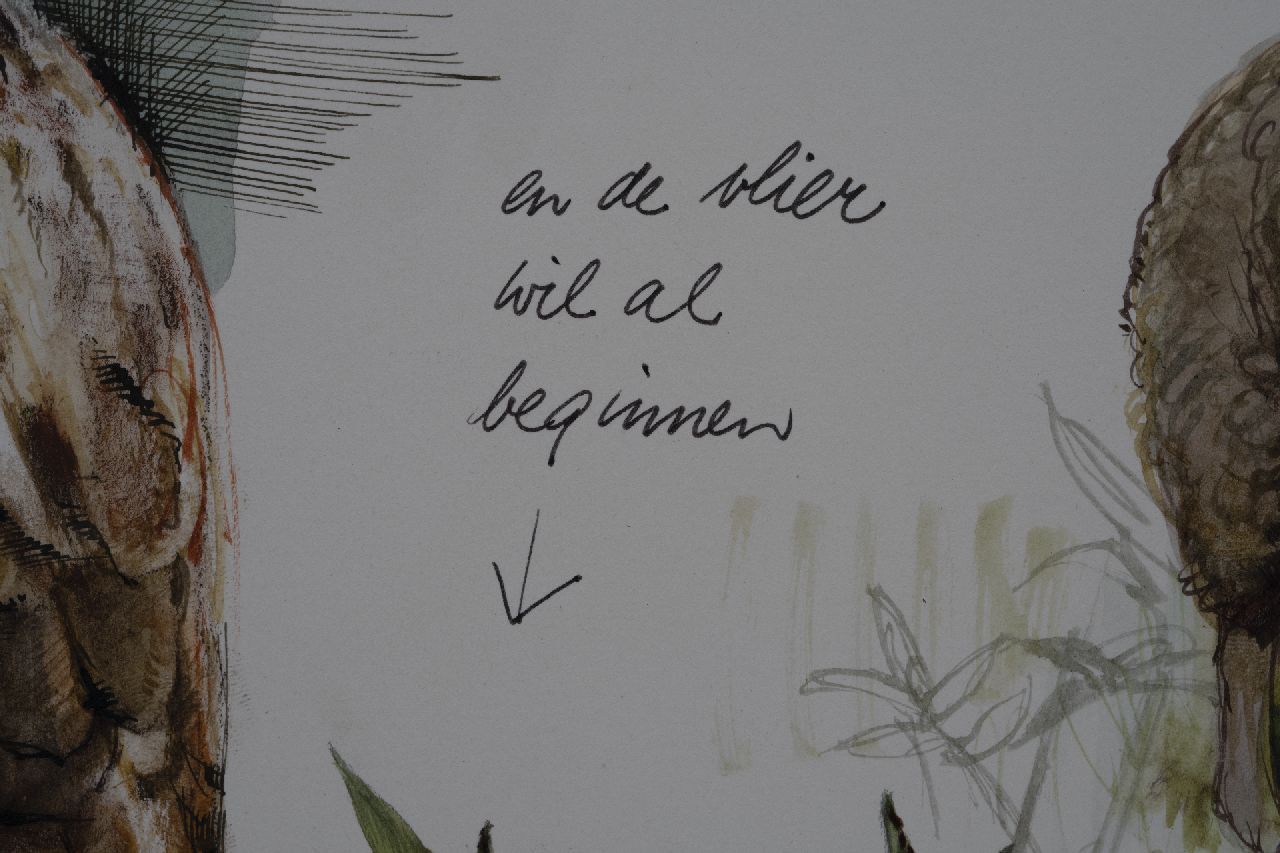 en de vlier
wil al
beginnen